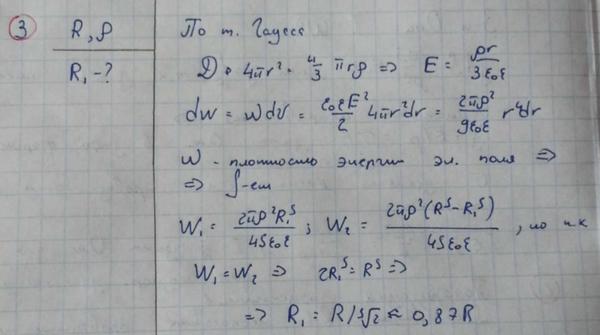 3 R, ρ
R₁ - ?
По т. Гаусса
D · 4πr² = 4/3 πrρ => E = ρr / 3ε₀ε
dw = wdv = ε₀εE²/2 4πr²dr = 2πρ²/9ε₀ε r⁴dr
w - плотность энергии эл. поля =>
=> ∫-ем
W₁ = 2πρ²R₁⁵ / 45ε₀ε ; W₂ = 2πρ²(R⁵ - R₁⁵) / 45ε₀ε , но т.к
W₁ = W₂ => 2R₁⁵ = R⁵ =>
=> R₁ = R/⁵√2 ≈ 0,87R